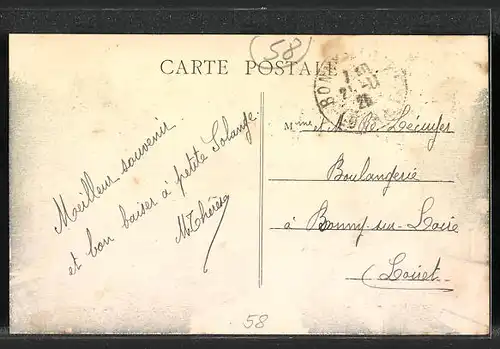 (58)
CARTE POSTALE
BON
7 30
26
Meilleur souvenir
et bon baiser à petite Solange
M Thérèse
Mme Lécuyer
Boulangerie
à Bonny-sur-Loire
(Loiret
58